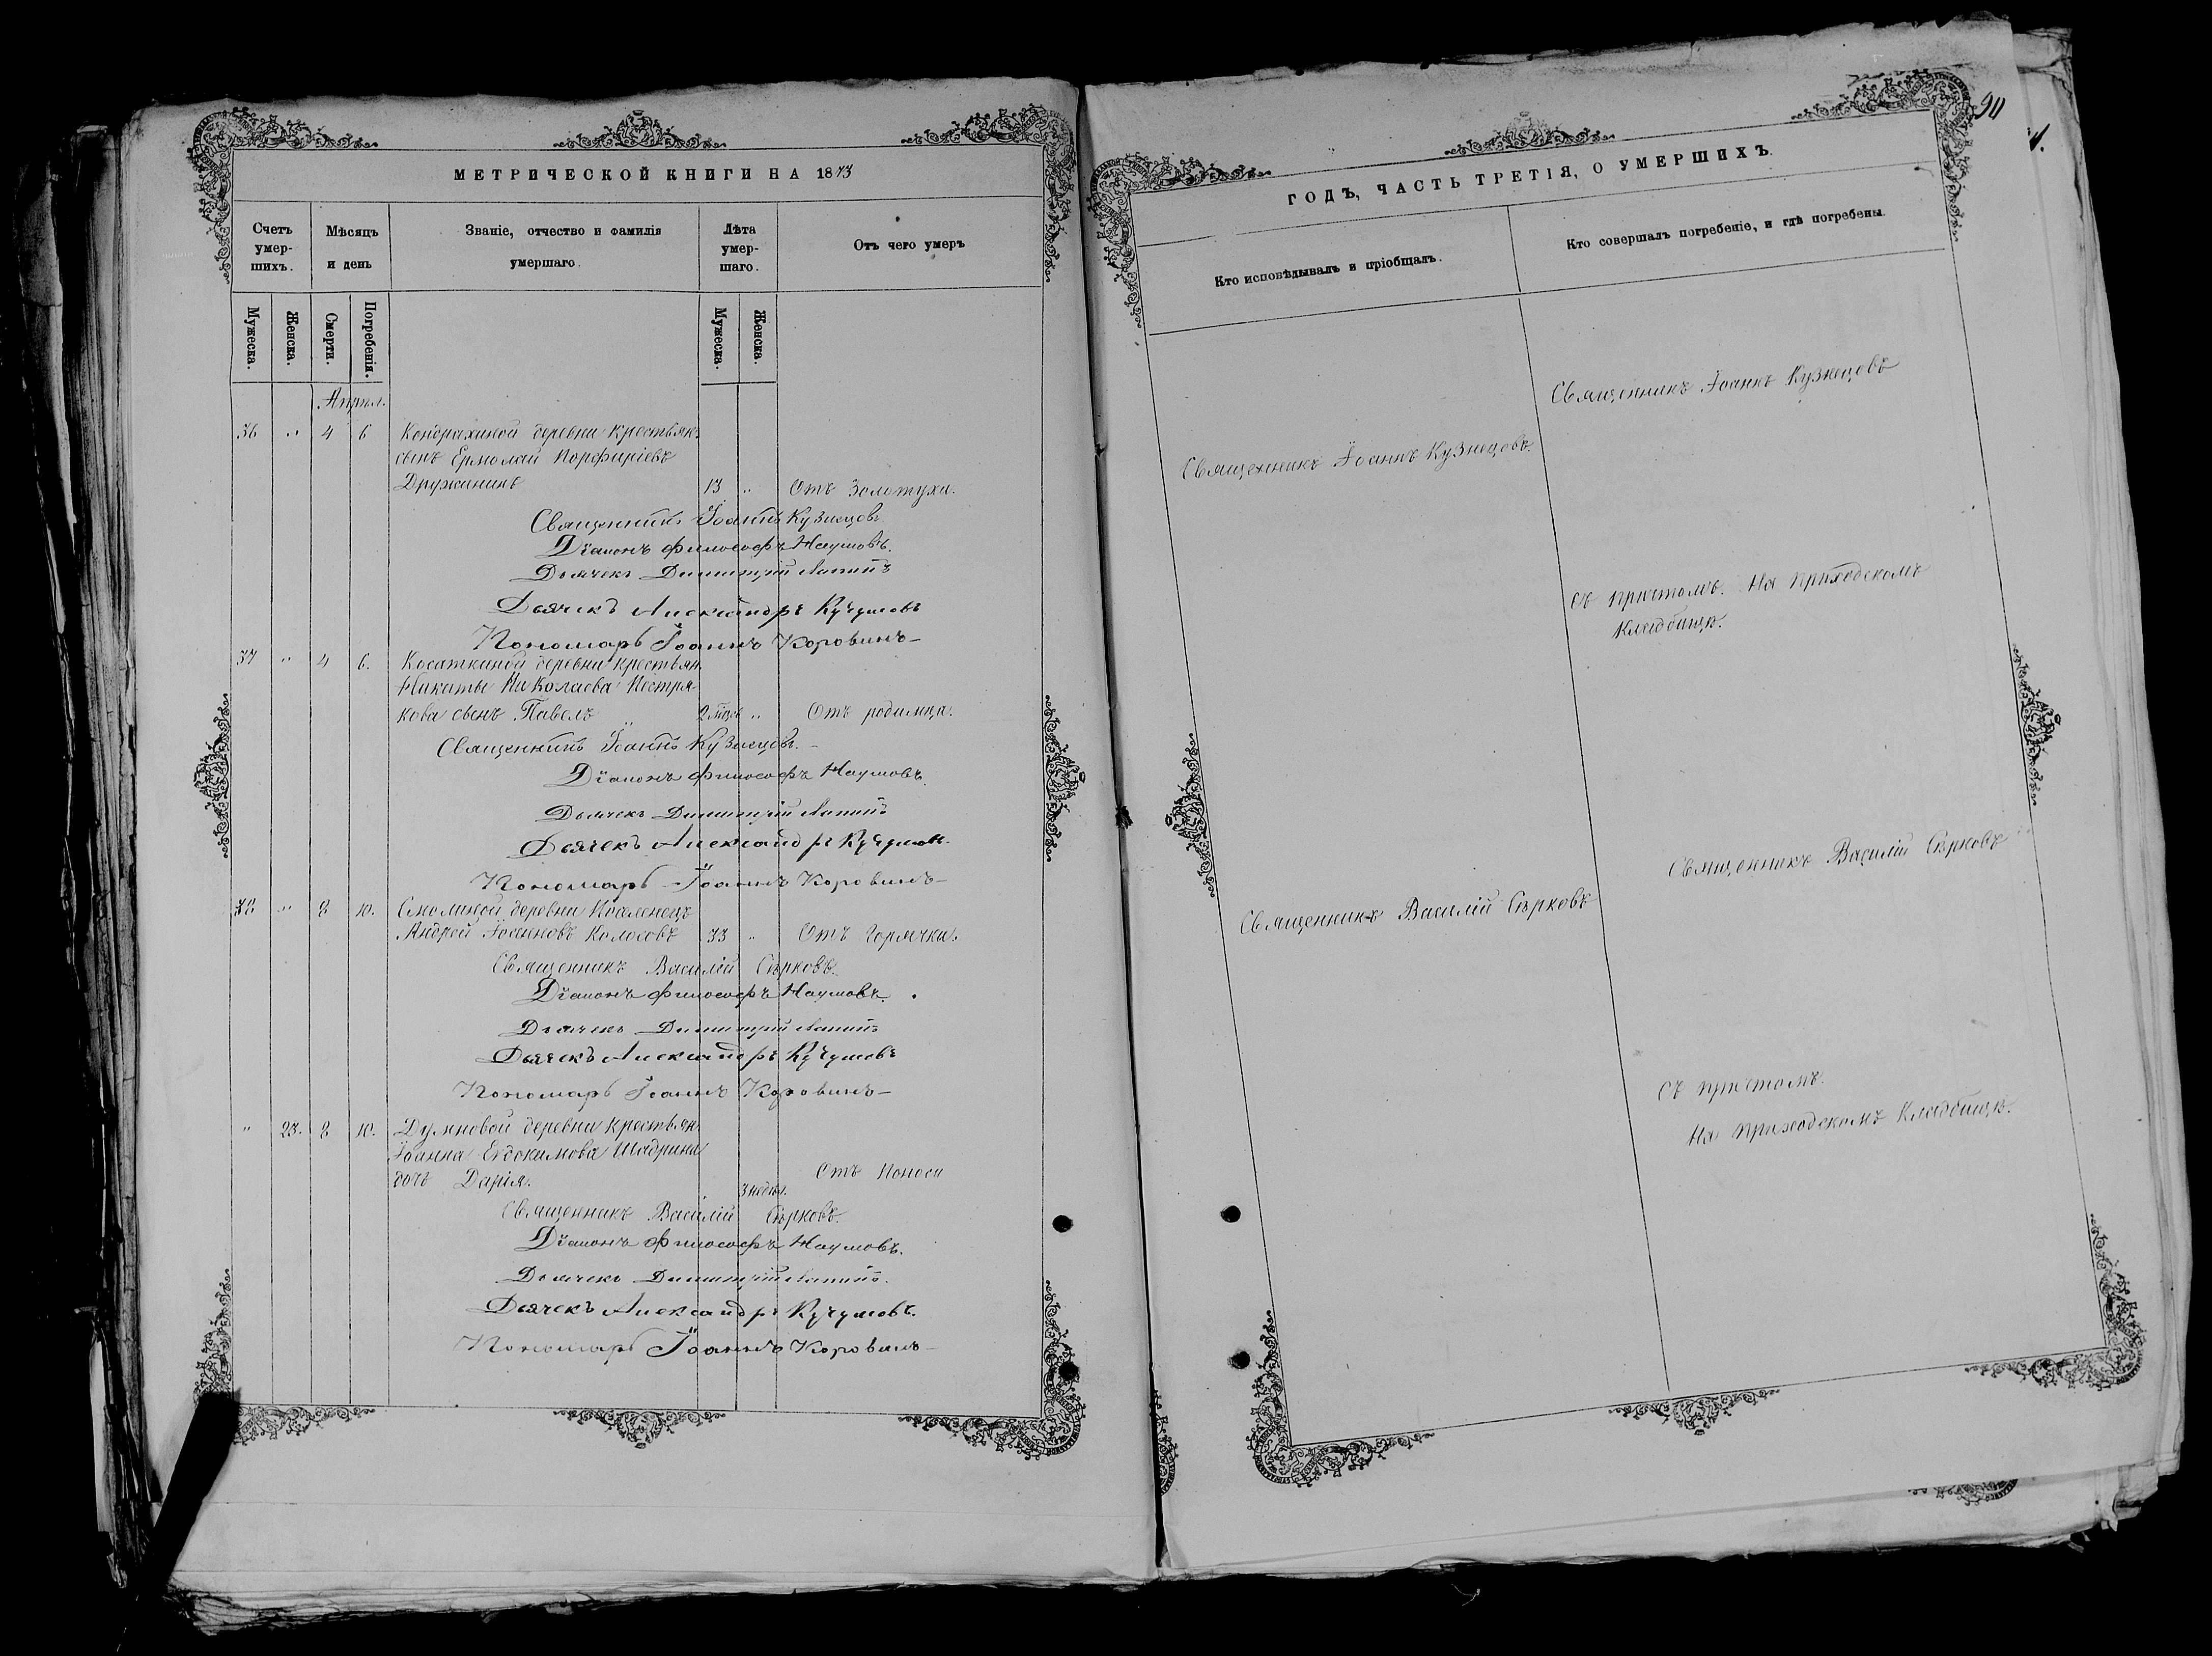 МЕТРИЧЕСКОЙ КНИГИ НА 1873
Счетъ умер-шихъ.
Мѣсяцъ и день
Званіе, отчество и фамилія умершаго.
Лѣта умер-шаго.
Отъ чего умеръ
Мужеска.
Женска.
Смерти.
Погребенія.
Мужеска.
Женска.
Апрѣл.
36 " 4 6 Кондрахиной деревни крестьян.
сынъ Ермолай Порфиріевъ
Дружининъ 13 " Отъ Золотухи.
Священникъ Іоаннъ Кузнецовъ
Діаконъ Философъ Наумовъ.
Дьячекъ Димитрій Лапинъ
Дьячекъ Александръ Кучумовъ
Пономарь Іоаннъ Коровинъ
37 " 4 6. Косаткиной деревни крестьян.
Никиты Николаева Пестря-
кова сынъ Павелъ " 2 мѣсяц. " Отъ родимца.
Священникъ Іоаннъ Кузнецовъ.
Діаконъ Философъ Наумовъ.
Дьячекъ Димитрій Лапинъ
Дьячекъ Александръ Кучумовъ.
Пономарь Іоаннъ Коровинъ
38 " 8 10. Смолиной деревни Поселенецъ
Андрей Іоанновъ Колосовъ 33 " Отъ Горячки.
Священникъ Василій Сѣрковъ.
Діаконъ Философъ Наумовъ.
Дьячекъ Димитрій Лапинъ
Дьячекъ Александръ Кучумовъ
Пономарь Іоаннъ Коровинъ
" 23. 8 10. деревни крестьян.
Іоанна Евдокимова Шадрина
дочь Дарія. 3 недѣл. Отъ Поноса
Священникъ Василій Сѣрковъ.
Діаконъ Философъ Наумовъ.
Дьячекъ Димитрій Лапинъ.
Дьячекъ Александръ Кучумовъ.
Пономарь Іоаннъ Коровинъ
ГОДЪ, ЧАСТЬ ТРЕТІЯ, О УМЕРШИХЪ.
Кто исповѣдывалъ и пріобщалъ.
Кто совершалъ погребеніе, и гдѣ погребены.
Священникъ Іоаннъ Кузнецовъ
Священникъ Іоаннъ Кузнецовъ.
Съ причтомъ. На приходскомъ
Кладбищѣ.
Священникъ Василій Сѣрковъ
Священникъ Василій Сѣрковъ
Съ причтомъ.
На приходскомъ Кладбищѣ.